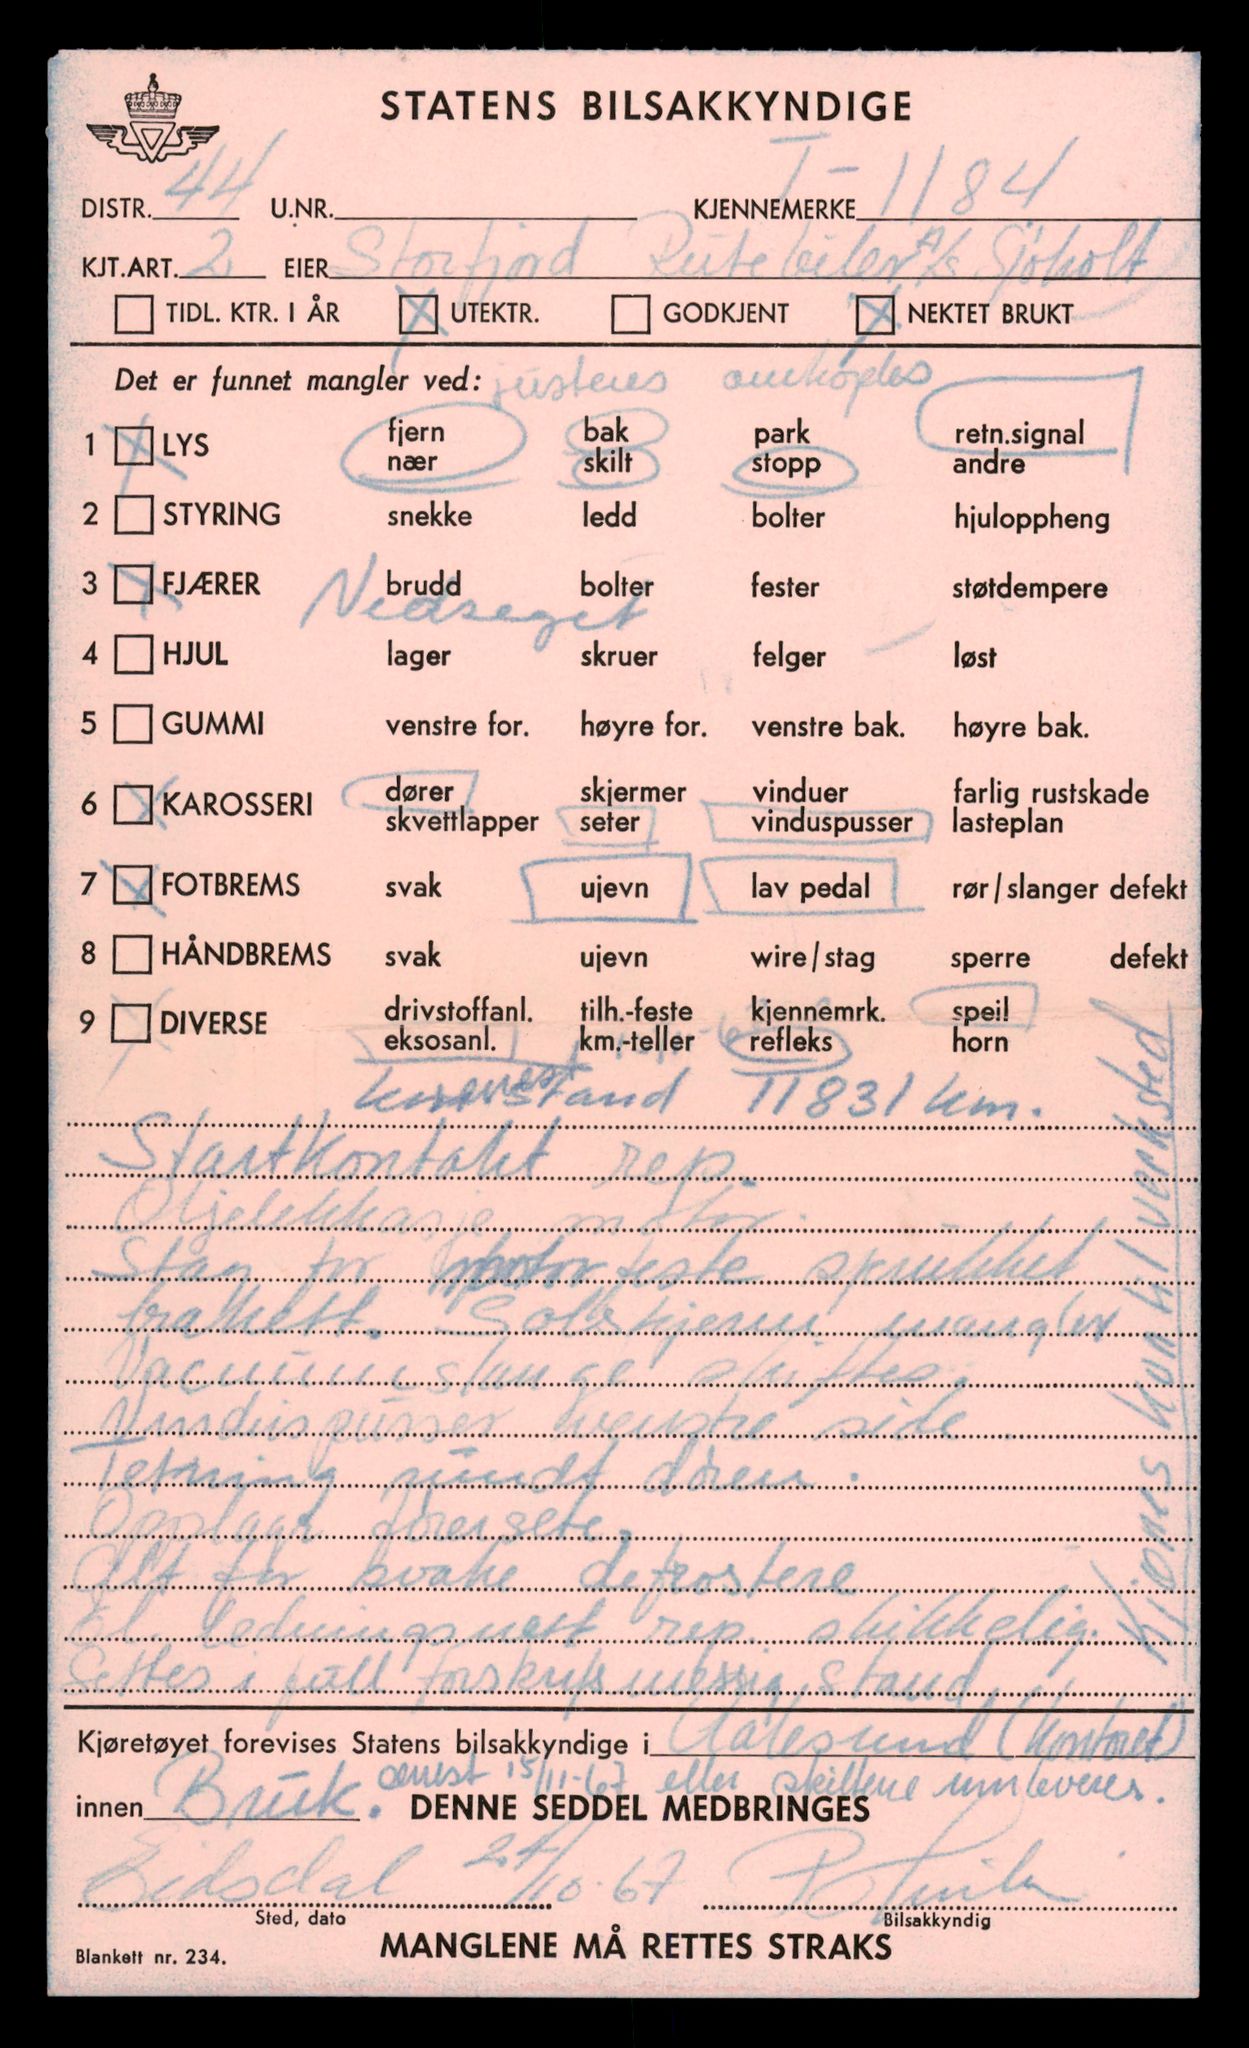 STATENS BILSAKKYNDIGE
DISTR. 44 U.NR. KJENNEMERKE T-1184
KJT.ART. 2 EIER Storfjord Rutebiler A/S Sjøholt
TIDL. KTR. I ÅR X UTEKTR. GODKJENT X NEKTET BRUKT
Det er funnet mangler ved: justeres omkoples
1 X LYS fjern bak park retn.signal
nær skilt stopp andre
2 STYRING snekke ledd bolter hjuloppheng
3 X FJÆRER brudd bolter fester støtdempere
Nedseget
4 HJUL lager skruer felger løst
5 GUMMI venstre for. høyre for. venstre bak. høyre bak.
6 X KAROSSERI dører skjermer vinduer farlig rustskade
skvettlapper seter vinduspusser lasteplan
7 X FOTBREMS svak ujevn lav pedal rør/slanger defekt
8 HÅNDBREMS svak ujevn wire/stag sperre defekt
9 X DIVERSE drivstoffanl. tilh.-feste kjennemrk. speil
eksosanl. km.-teller refleks horn
stand 11831 km.
Startkontakt rep.
Oljelekkasje motor.
Stag for feste sprukket
brakett. Solskjerm mangler
Vacuumslange skiftes.
Vinduspusser venstre side.
Tetning rundt døren.
Opplagr førersete.
Alt for svake defrostere
El. ledningsnett rep. skikkelig.
Settes i full forskriftsmessig stand.
Kjøres kun til verksted
Kjøretøyet forevises Statens bilsakkyndige i Aalesund (Kontoret)
senest 15/11-67 eller skiltene innleveres.
innen Bruk. DENNE SEDDEL MEDBRINGES
Eidsdal 24/10-67
Sted, dato Bilsakkyndig
Blankett nr. 234. MANGLENE MÅ RETTES STRAKS